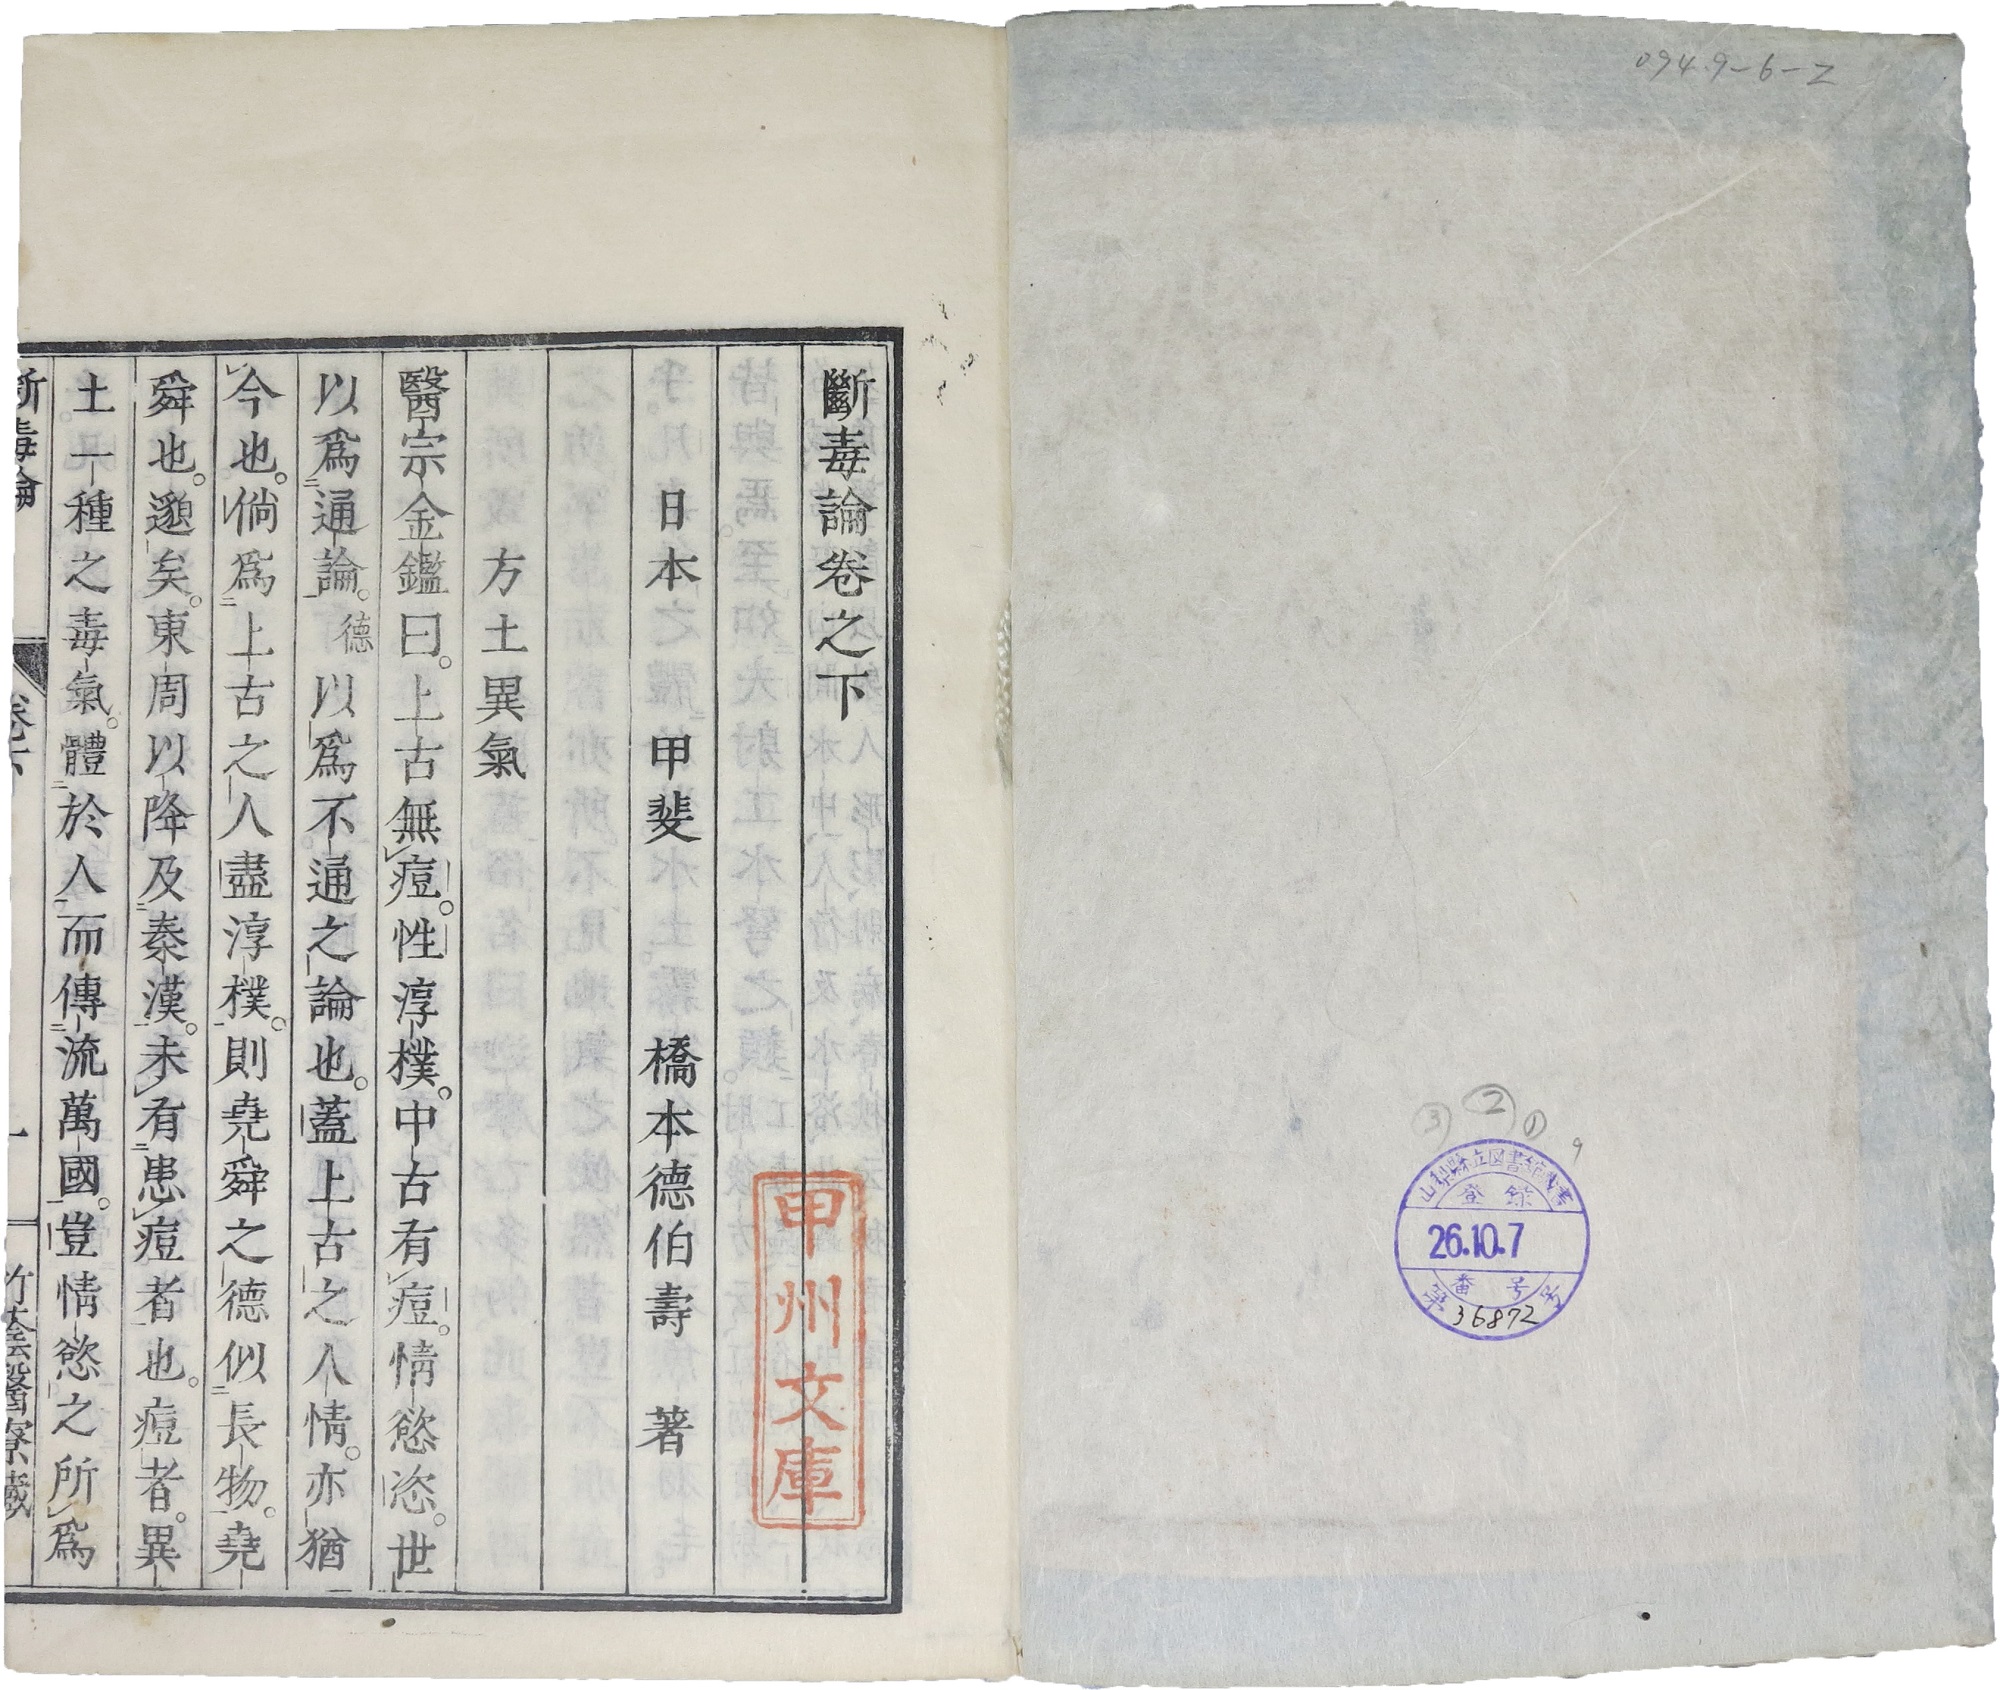 094.9-6-2
③ ② ① 9
山梨縣立図書館蔵書
登錄
26.10.7
番号
36872
斷毒論卷之下
日本 甲斐 橋本德伯壽 著
甲州文庫
方土異氣
醫宗金鑑曰。上古無痘。性淳樸。中古有痘。情慾恣。世
以爲通論。德以爲不通之論也。蓋上古之人情。亦猶
今也。倘爲上古之人盡淳樸。則堯舜之德似長物。堯
舜也。邈矣。東周以降及秦漢。未有患痘者也。痘者。異
土一種之毒氣。體於人而傳流萬國。豈情慾之所爲
斷毒論 卷下 一 竹蔭醫寮藏